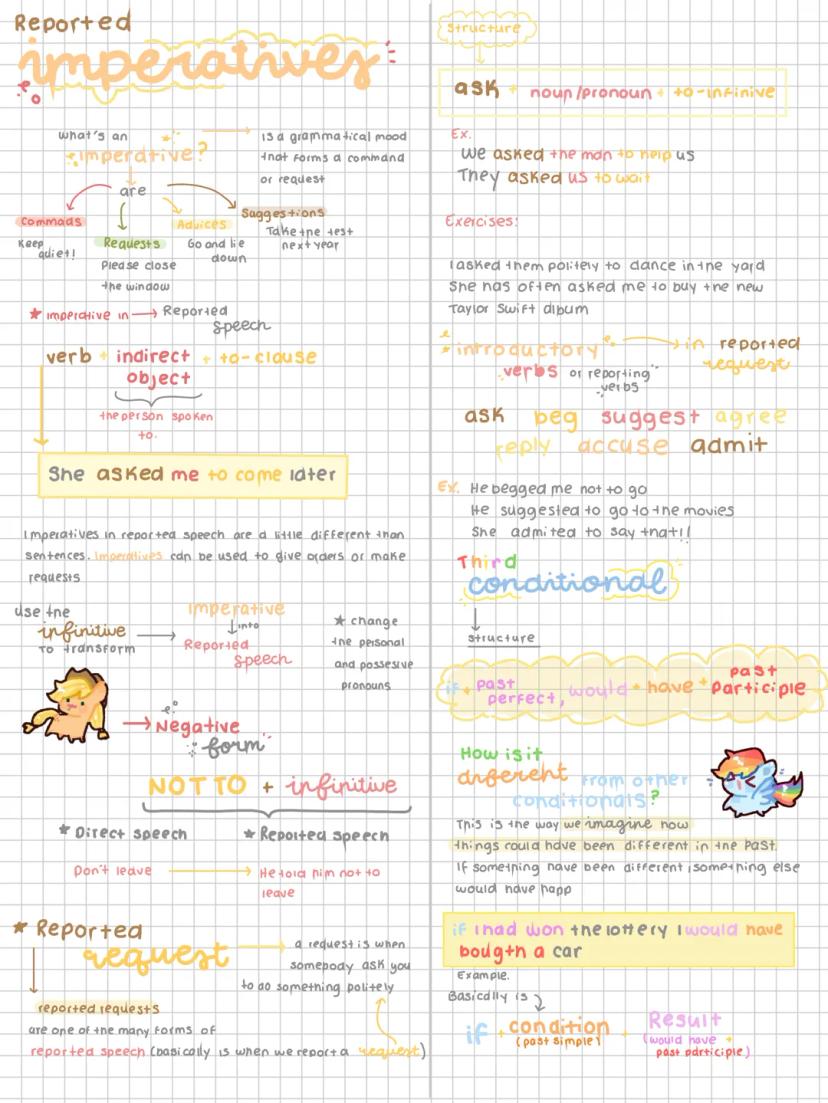 Reported
imperatives
what's an
imperative?
is a grammatical mood
that forms a command
or request
are
Commads
Keep
quiet!
Requests
Please close
the window
Advices
Go and lie
down
Suggestions
Take the test
next year
★ imperative in → Reported
speech
verb + indirect + to-clause
object
the person spoken
to.
She asked me to come later
Imperatives in reported speech are a little different than
sentences. Imperatives can be used to give orders or make
requests
use the
infinitive
to transform
imperative
↓ into
Reported
speech
★ change
the personal
and possesive
pronouns
→ Negative
form
NOT TO + infinitive
★ Direct speech
★ Reported speech
Don't leave
He told him not to
leave
★ Reported
request
a request is when
somebody ask you
to do something politely
reported requests
are one of the many forms of
reported speech (basically is when we report a request)
Structure
ask + noun/pronoun + to-infinive
Ex.
We asked the man to help us
They asked us to wait
Exercises:
I asked them politely to dance in the yard
She has often asked me to buy the new
Taylor Swift album
introductory
verbs or reporting
verbs
in reported
request
ask beg suggest agree
reply accuse admit
Ex. He begged me not to go
He suggested to go to the movies
She admited to say that!!
Third
conditional
structure
if + past
perfect, would + have + past
participle
How is it
diferent from other
conditionals?
This is the way we imagine how
things could have been different in the past.
If something have been different, something else
would have happ
if I had won the lottery I would have
bougth a car
Example.
Basically is
if + condition
(past simple)
+ Result
(would have +
past participle)